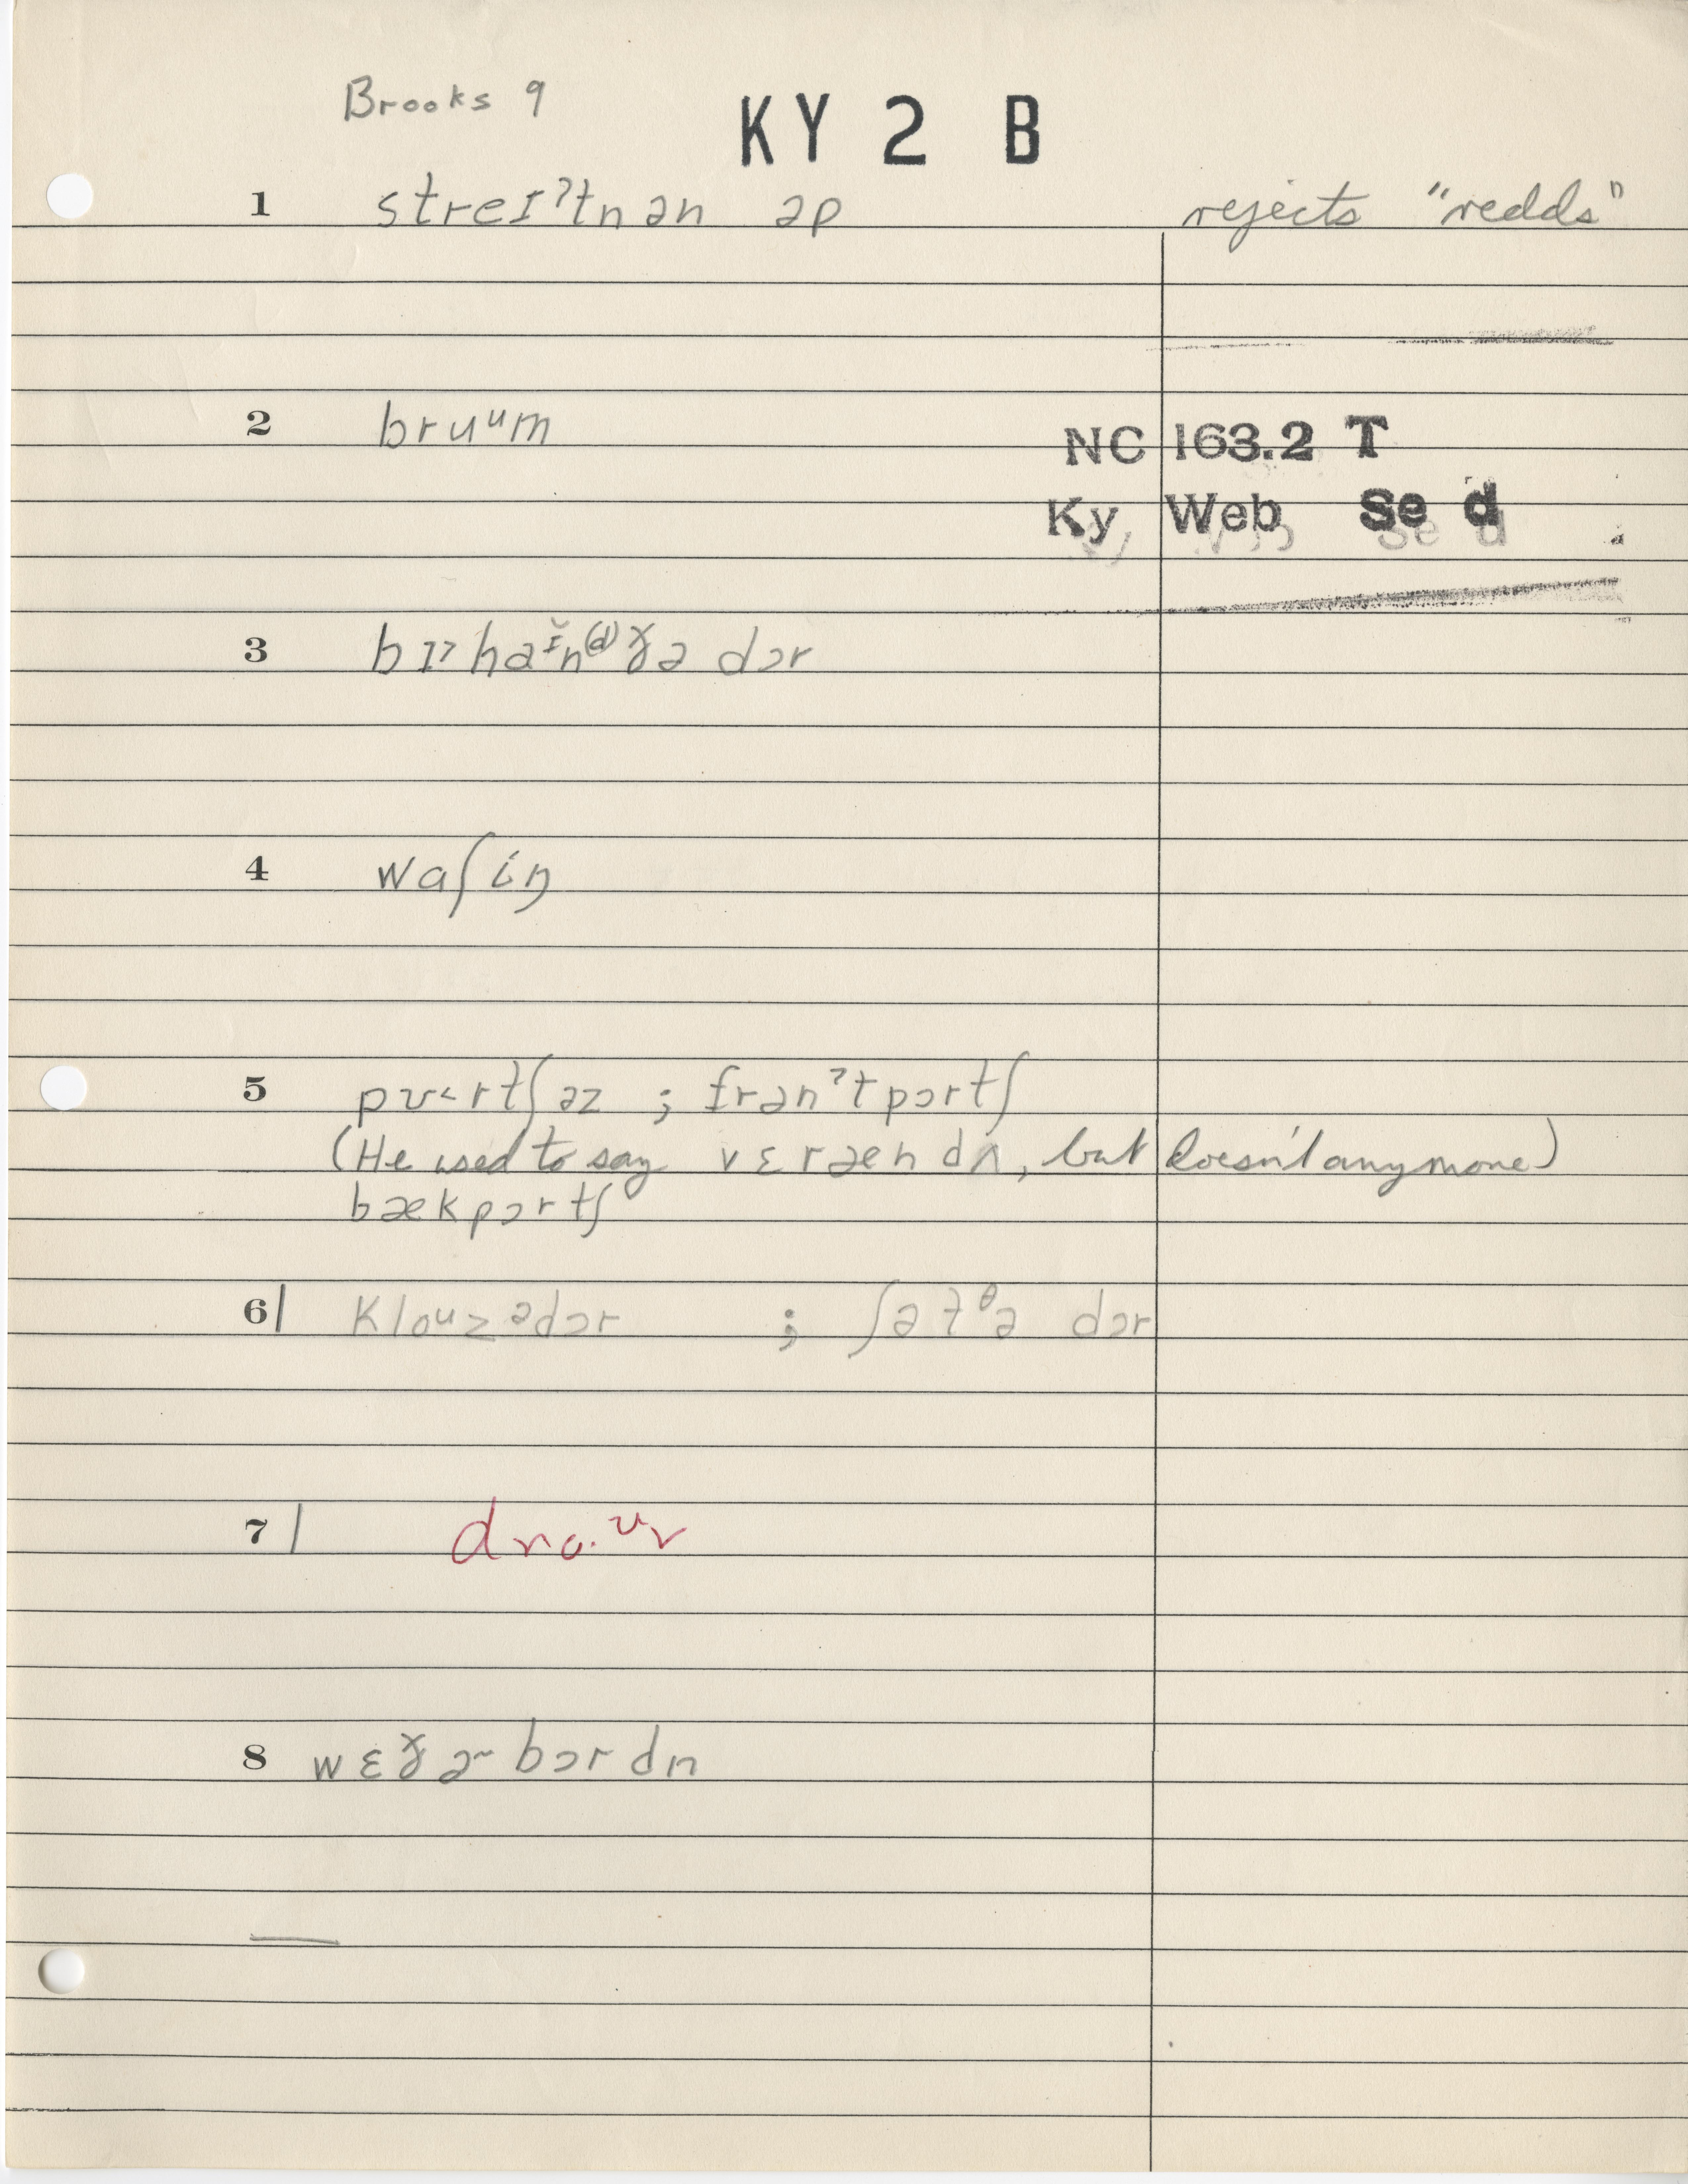 Brooks 9
KY 2 B
1 streɪˀtnən əp rejects "redds"
2 bruᵘm
NC 163.2 T
Ky Web Se d
3 bɪ˃haɪ̆n⁽ᵈ⁾ɣ̌ə dɔr
4 waʃiŋ
5 pʊ˂rtʃəz ; frənˀtpɔrtʃ
(He used to say vɛrændʌ, but doesn't anymore)
bækpɔrtʃ
6 klouzədɔr ; ʃətᶿə dɔr
7
8 wɛɣ̌ɚbɔrdn